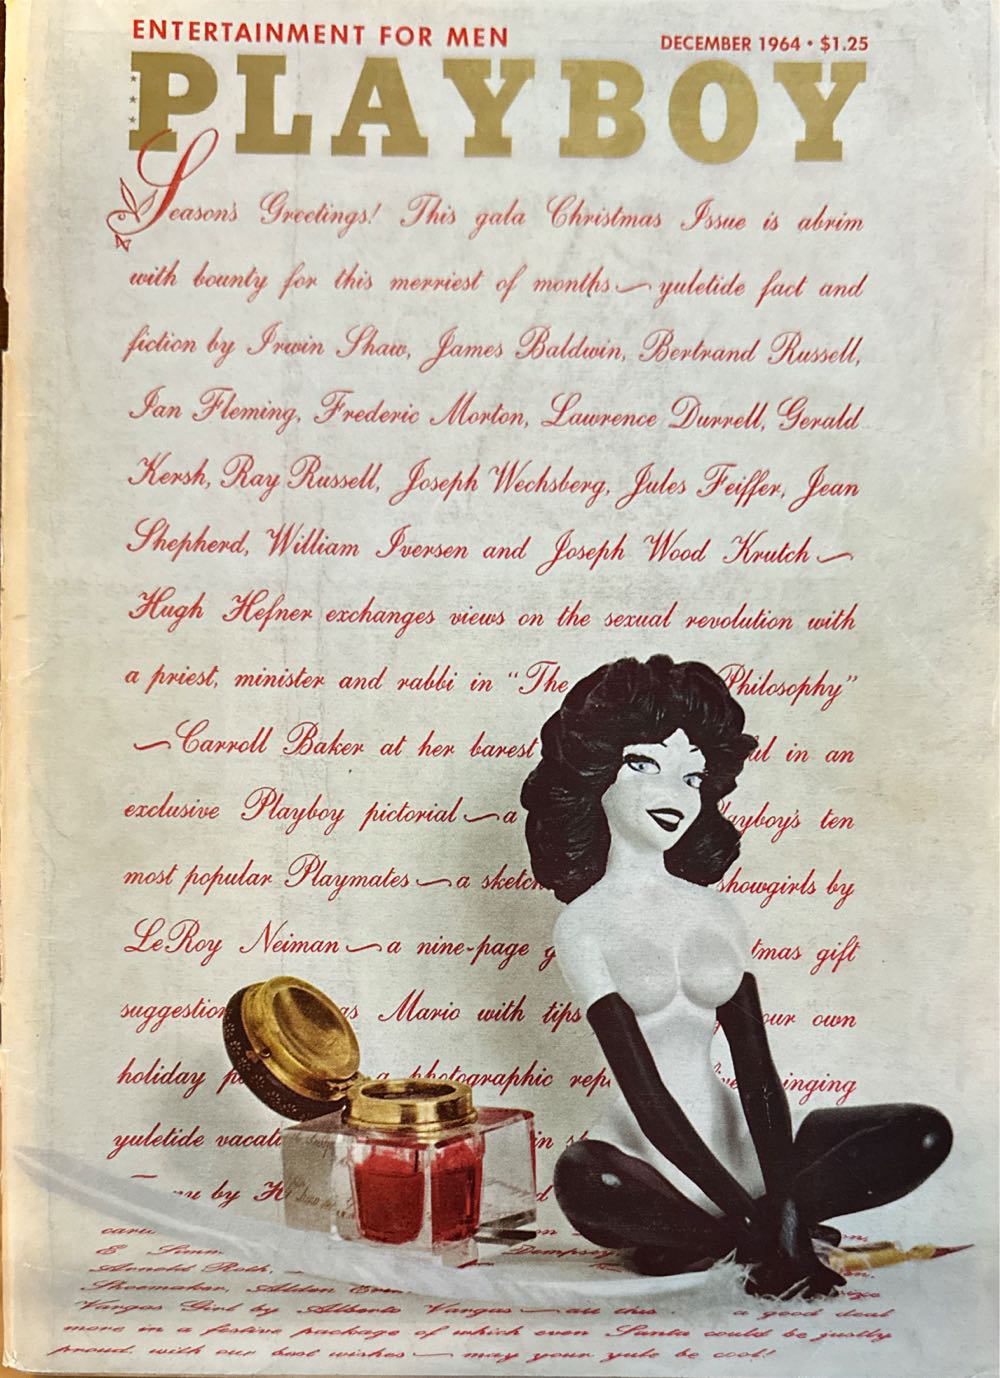 ENTERTAINMENT FOR MEN
DECEMBER 1964 • $1.25
PLAYBOY
Season's Greetings! This gala Christmas Issue is abrim
with bounty for this merriest of months — yuletide fact and
fiction by Irwin Shaw, James Baldwin, Bertrand Russell,
Ian Fleming, Frederic Morton, Lawrence Durrell, Gerald
Kersh, Ray Russell, Joseph Wechsberg, Jules Feiffer, Jean
Shepherd, William Iversen and Joseph Wood Krutch —
Hugh Hefner exchanges views on the sexual revolution with
a priest, minister and rabbi in "The Philosophy"
— Carroll Baker at her barest in an
exclusive Playboy pictorial — a ten
most popular Playmates — a showgirls by
LeRoy Neiman — a nine-page gift
Mario with tips our own
holiday a photographic
yuletide in
by
Dempsey
Arnold Roth,
Shoemaker, Alden
Vargas Girl by Alberto Vargas — all this a good deal
more in a festive package of which even Santa could be justly
proud. with our best wishes — may your yule be cool!